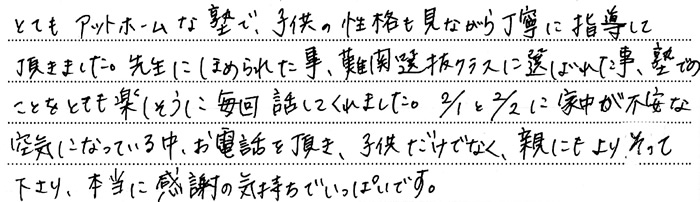 とても アットホームな塾で、子供の性格も見ながら丁寧に指導して
頂きました。先生にほめられた事、難関選抜クラスに選ばれた事、塾での
ことをとても楽しそうに毎回話してくれました。2/1と2/2に家中が不安な
空気になっている中、お電話を頂き、子供だけでなく、親にもよりそって
下さり、本当に感謝の気持ちでいっぱいです。